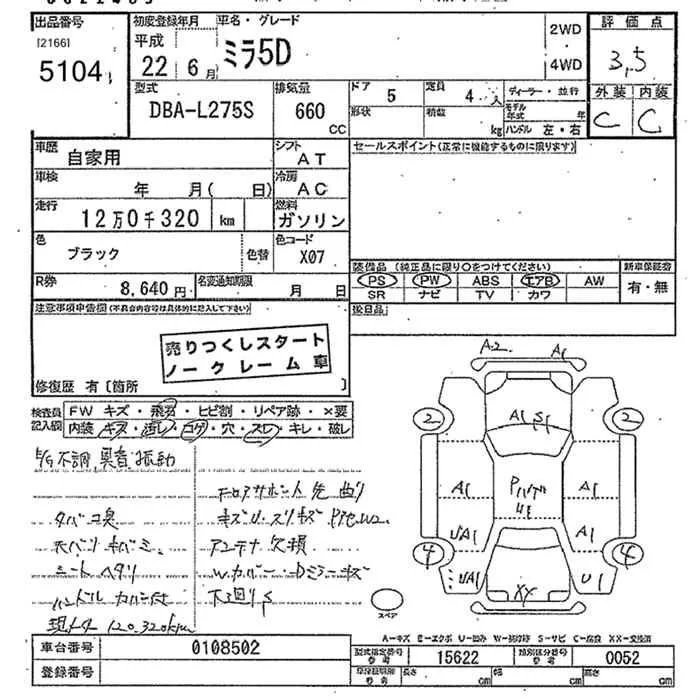 出品番号
[2166]
5104
初度登録年月
平成
22年6月
車名・グレード
ミラ5D
2WD
4WD
評価点
3.5
外装 内装
C C
型式
DBA-L275S
排気量
660
CC
ドア 5
形状
定員 4人
積載 kg
ディーラー・並行
モデル年式 年
ハンドル 左・右
車歴 自家用
シフト AT
セールスポイント(正常に機能するものに限ります)
車検 年 月( 日)
冷房 AC
走行 12万0千320 km
燃料 ガソリン
色 ブラック 色替
色コード X07
装備品 (純正品に限り○をつけてください) 新車保証書
PS PW ABS エアB AW 有・無
SR ナビ TV カワ
R券 8,640円 名変通知期限 月 日
後日品
注意事項申告欄(不具合内容等は具体的に記入して下さい)
売りつくしスタート
ノークレーム車
修復歴 有〔箇所 〕
検査員記入欄
FW キズ・飛石・ヒビ割・リペア跡・×要
内装 キズ・汚レ・コゲ・穴・スレ・キレ・破レ
不調,異音 振動
タバコ臭
シートヘタリ
ハンドル
現メータ 120,320km
フロアサポート先曲リ
アンテナ欠損
下廻りS
A2 A1
2 2
4 4
A1 S1
A1 A1
A1
U1
XX
スペア
A-キズ E-エクボ U-凹み W-補修跡 S-サビ C-腐食 XX-交換済
車台番号 0108502
登録番号
型式指定番号 参考 15622
類別区分番号 参考 0052
車検証記載 参考 長さ cm 幅 cm 高さ cm